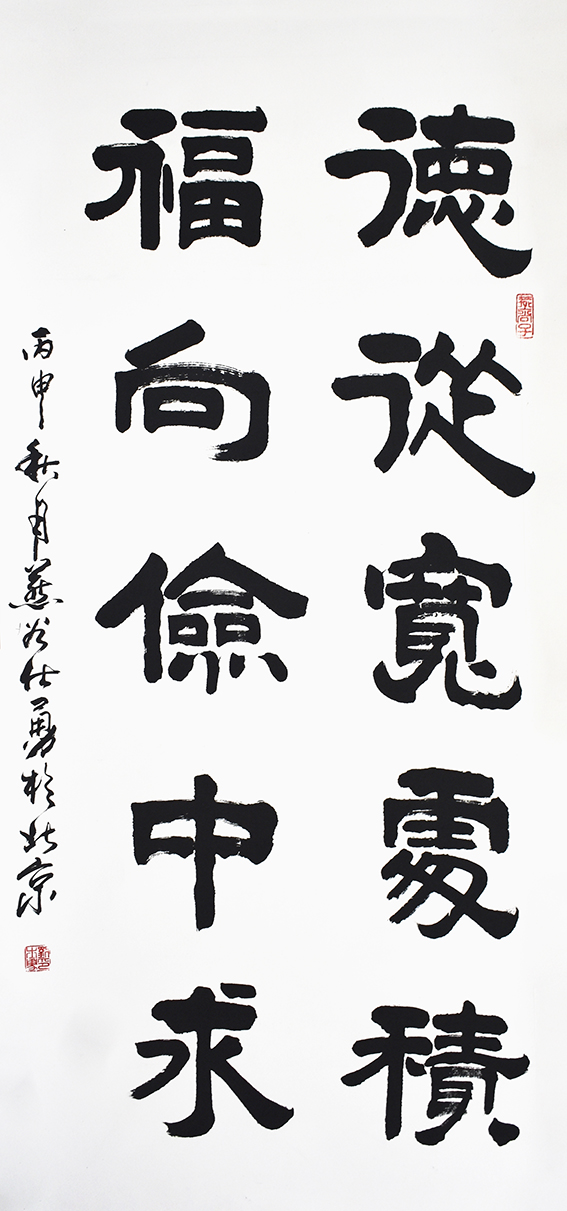 德從寬處積
福向儉中求
丙申秋月燕谷仕勇於北京